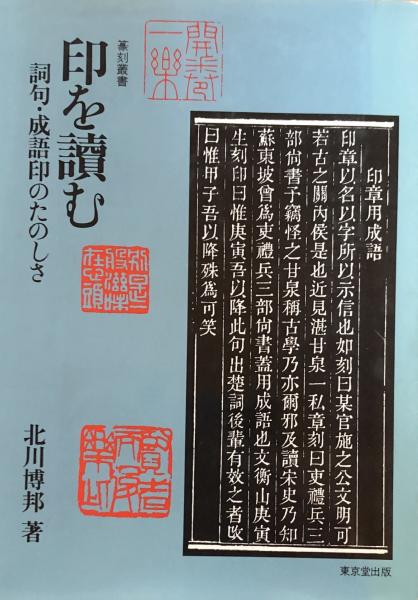 篆刻叢書
印を讀む
詞句・成語印のたのしさ
北川博邦 著
開卷一樂
別是一般滋味在心頭
賢者而后樂此
印章用成語
印章以名以字所以示信也如刻曰某官施之公文明可
若古之關内侯是也近見湛甘泉一私章刻曰吏禮兵三
部尚書予竊怪之甘泉稱古學乃亦爾邪及讀宋史乃知
蘇東坡曾爲吏禮兵三部尚書蓋用成語也文衡山庚寅
生刻印曰惟庚寅吾以降此句出楚詞後輩有效之者
曰惟甲子吾以降殊爲可笑
東京堂出版